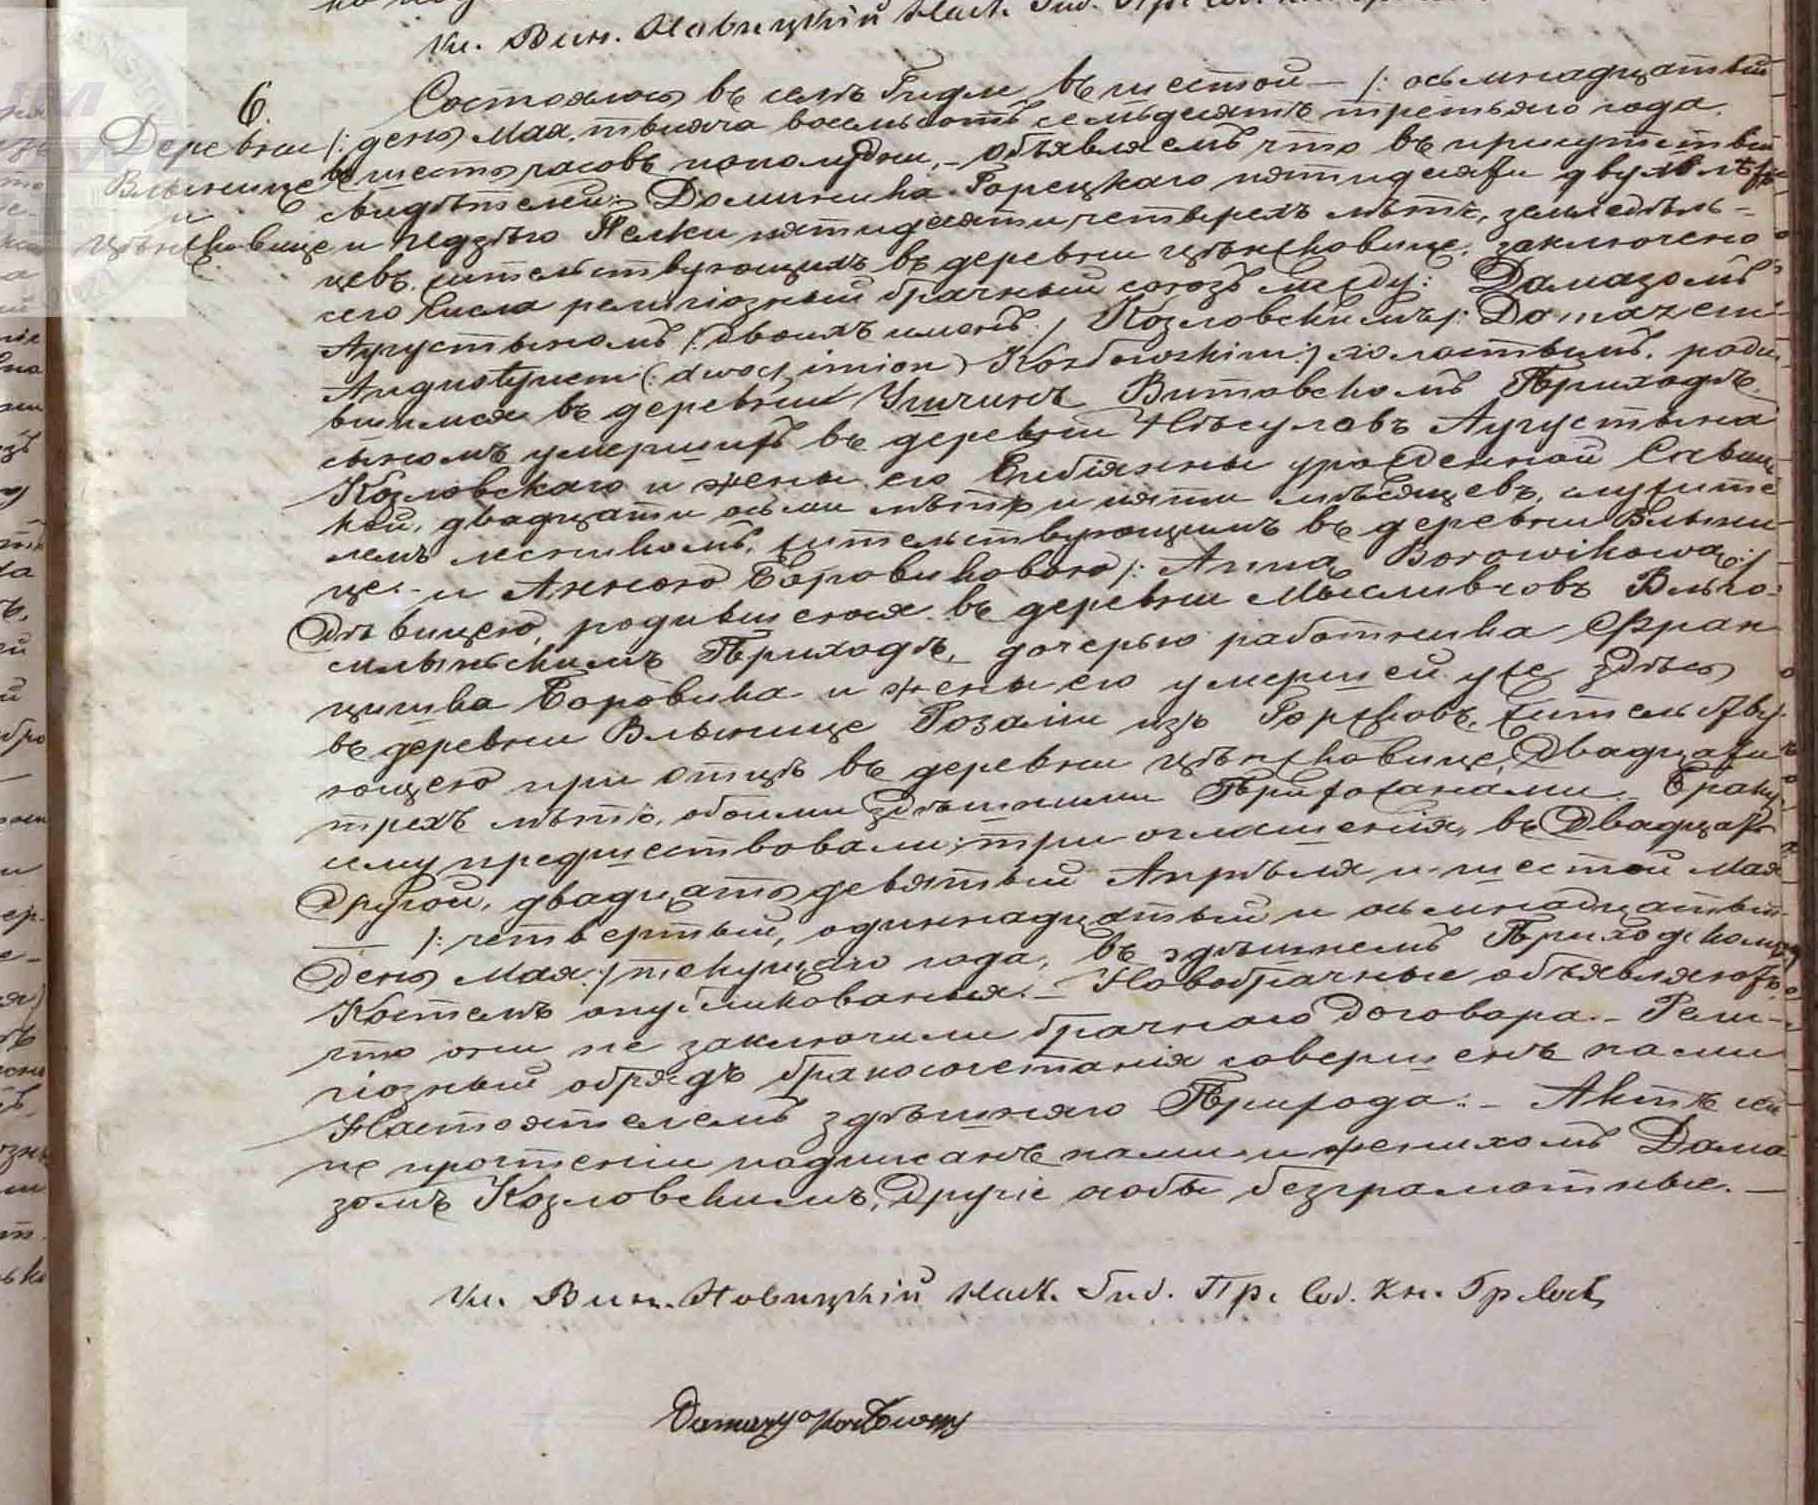 Кс. Вин. Новицкій Наст. Гид. Пр.
6.
Деревни
Влынице
и
Цѣнсковице
Состоялось въ селѣ Гидле въ шестой — /: осьмнадцатый
/: день Мая, тысяча восемьсотъ семьдесятъ третьяго года.
въ шесть часовъ пополудни, – Объявляемъ что въ присутствіи
свидѣтелей: Доминика Горецкаго пятидесяти двухъ лѣтъ
и пятидесяти четырехъ лѣтъ, земледѣль-
цевъ жительствующихъ въ деревни Цѣнсковице, заключено
сего числа религіозный брачный союзъ между: Дамазомъ
Аугустыномъ /: двоихъ именъ :/ Козловскимъ /: Damazem
Augustynem (: dwoch imion) Kozłowskim :/ холостымъ, роди-
вшимся въ деревни Витовскомъ Приходѣ
сыномъ умершихъ въ деревни Аугустына
Козловскаго и жены его Бибіянны урожденной
кой, двадцати осьми лѣтъ и пяти мѣсяцевъ, служите
лемъ жительствующимъ въ деревни Влыни
це. – и Анною Боровиковою /: Anną Borowikową :/
Дѣвицею, родившеюся въ деревни Мысливчовъ Вельго-
млынскимъ Приходѣ, дочерью работника Фран
цишка Боровика и жены его умершей уже здѣсь
въ деревни Влынице Розаліи изъ жительству-
ющею при отцѣ въ деревни Цѣнсковице, Двадцати
трехъ лѣтъ, обоими здѣшними Прихожанами. Браку
сему предшествовали три оглашенія, въ Двадцать
Другой, двадцать девятый Апрѣля и шестой Мая
— /: четвертый, одиннадцатый и осьмнадцатый
День Мая :/ текущаго года, въ здѣшнемъ Приходскомъ
Костелѣ опубликованыя. – Новобрачные объявляютъ
что они не заключили брачнаго Договора. – Рели-
гіозный обрядъ бракосочетанія совершенъ нами
Настоятелемъ здѣшняго Прихода. – Актъ сей
по прочтеніи подписанъ нами и женихомъ Дама
зомъ Козловскимъ, Другіе особы безграмотные. —
Кс. Вин. Новицкій Наст. Гид. Пр. Сод. Кн. Гр. Сост.
Damazy Kozłowski